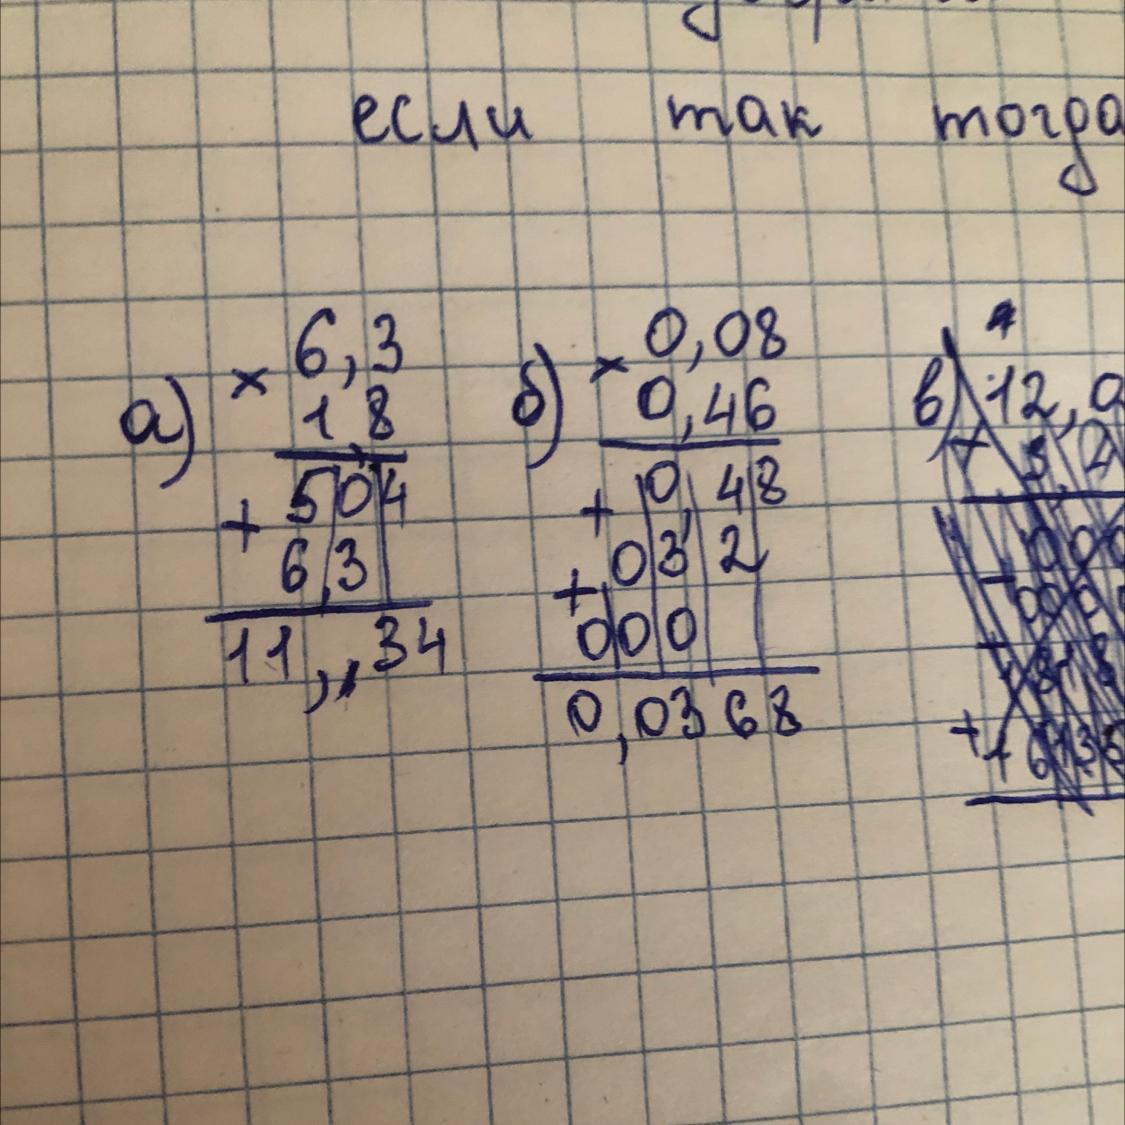 если так тогда
а) × 6,3
1,8
+ 504
63
11,34
б) × 0,08
0,46
+ 0,48
+ 032
000
0,0368
в) 12,0